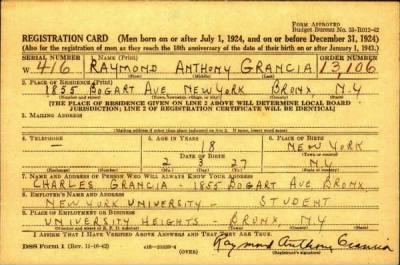 FORM APPROVED
Budget Bureau No. 33-R012-42
REGISTRATION CARD (Men born on or after July 1, 1924, and on or before December 31, 1924)
(Also for the registration of men as they reach the 18th anniversary of the date of their birth on or after January 1, 1943.)
SERIAL NUMBER 1. NAME (Print) ORDER NUMBER
W 416 RAYMOND ANTHONY GRANCIA 13,106
(First) (Middle) (Last)
2. PLACE OF RESIDENCE (Print)
1855 BOGART AVE NEW YORK BRONX, N.Y
(Number and street) (Town, township, village, or city) (County) (State)
[THE PLACE OF RESIDENCE GIVEN ON LINE 2 ABOVE WILL DETERMINE LOCAL BOARD
JURISDICTION; LINE 2 OF REGISTRATION CERTIFICATE WILL BE IDENTICAL]
3. MAILING ADDRESS
[Mailing address if other than place indicated on line 2. If same, insert word same]
4. TELEPHONE 5. AGE IN YEARS 6. PLACE OF BIRTH
— 18 NEW YORK
DATE OF BIRTH (Town or county)
2 3 27 N.Y.
(Exchange) (Number) (Mo.) (Day) (Yr.) (State or country)
7. NAME AND ADDRESS OF PERSON WHO WILL ALWAYS KNOW YOUR ADDRESS
CHARLES GRANCIA - 1855 BOGART AVE BRONX
8. EMPLOYER'S NAME AND ADDRESS
NEW YORK UNIVERSITY - STUDENT
9. PLACE OF EMPLOYMENT OR BUSINESS
UNIVERSITY HEIGHTS - BRONX, N.Y
(Number and street or R. F. D. number) (Town) (County) (State)
I AFFIRM THAT I HAVE VERIFIED ABOVE ANSWERS AND THAT THEY ARE TRUE.
DSS Form 1 (Rev. 11-16-42) (OVER) Raymond Anthony Grancia
(Registrant's signature)